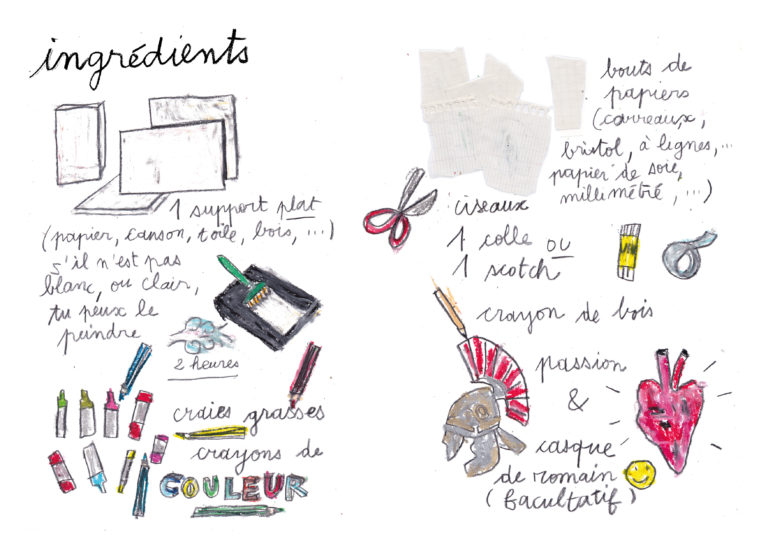 ingrédients
1 support plat
(papier, canson, toile, bois, ...)
s'il n'est pas
blanc, ou clair,
tu peux le
peindre
2 heures
craies grasses
crayons de
COULEUR
bouts de
papiers
(carreaux,
bristol, à lignes, ...
papier de soie,
millimétré, ...)
ciseaux
1 colle ou
1 scotch
crayon de bois
passion
&
casque
de romain
(facultatif)